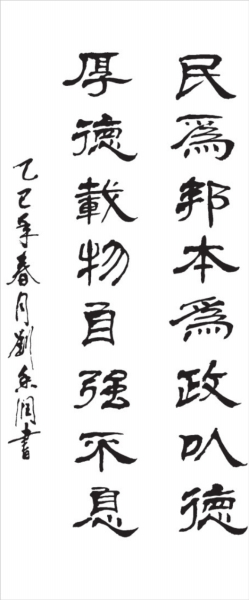 民為邦本為政以德
厚德載物自强不息
乙巳年春月劉永潤書